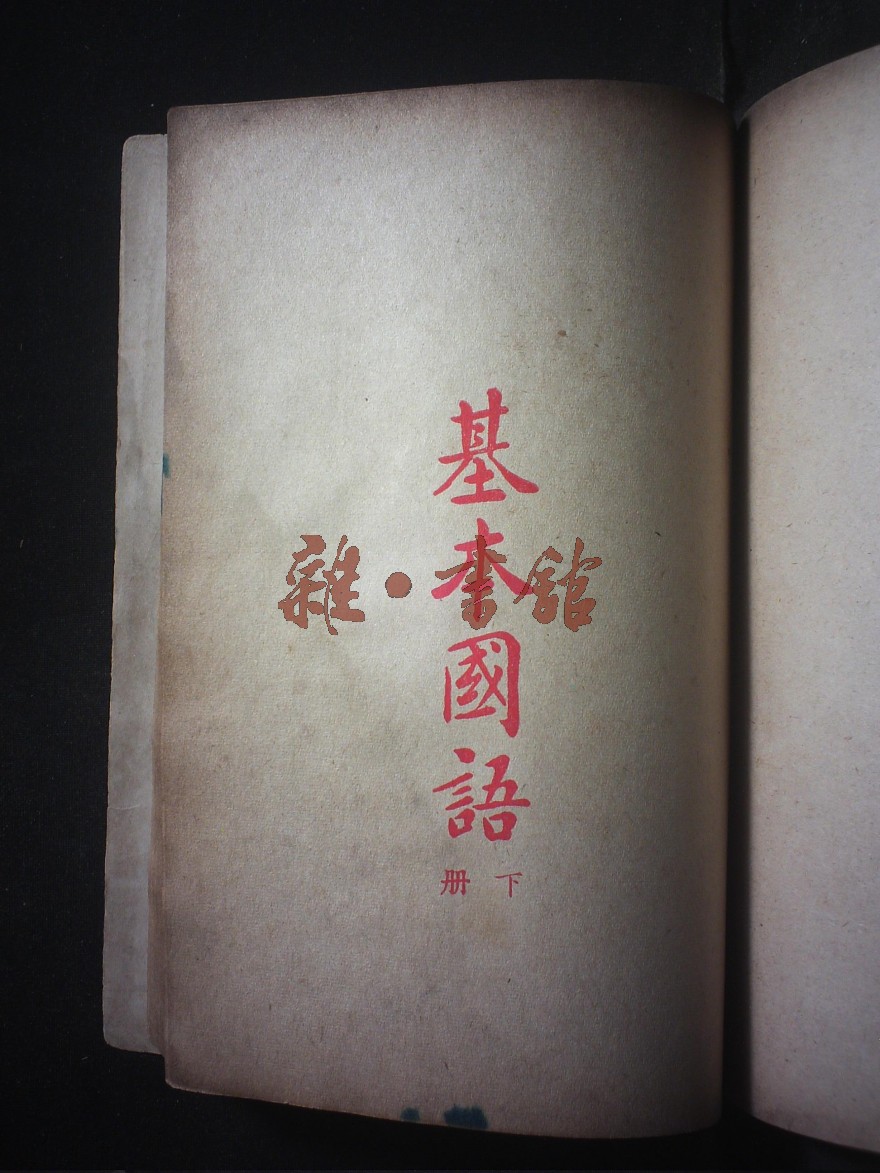 基本國語
下册
雜·書館